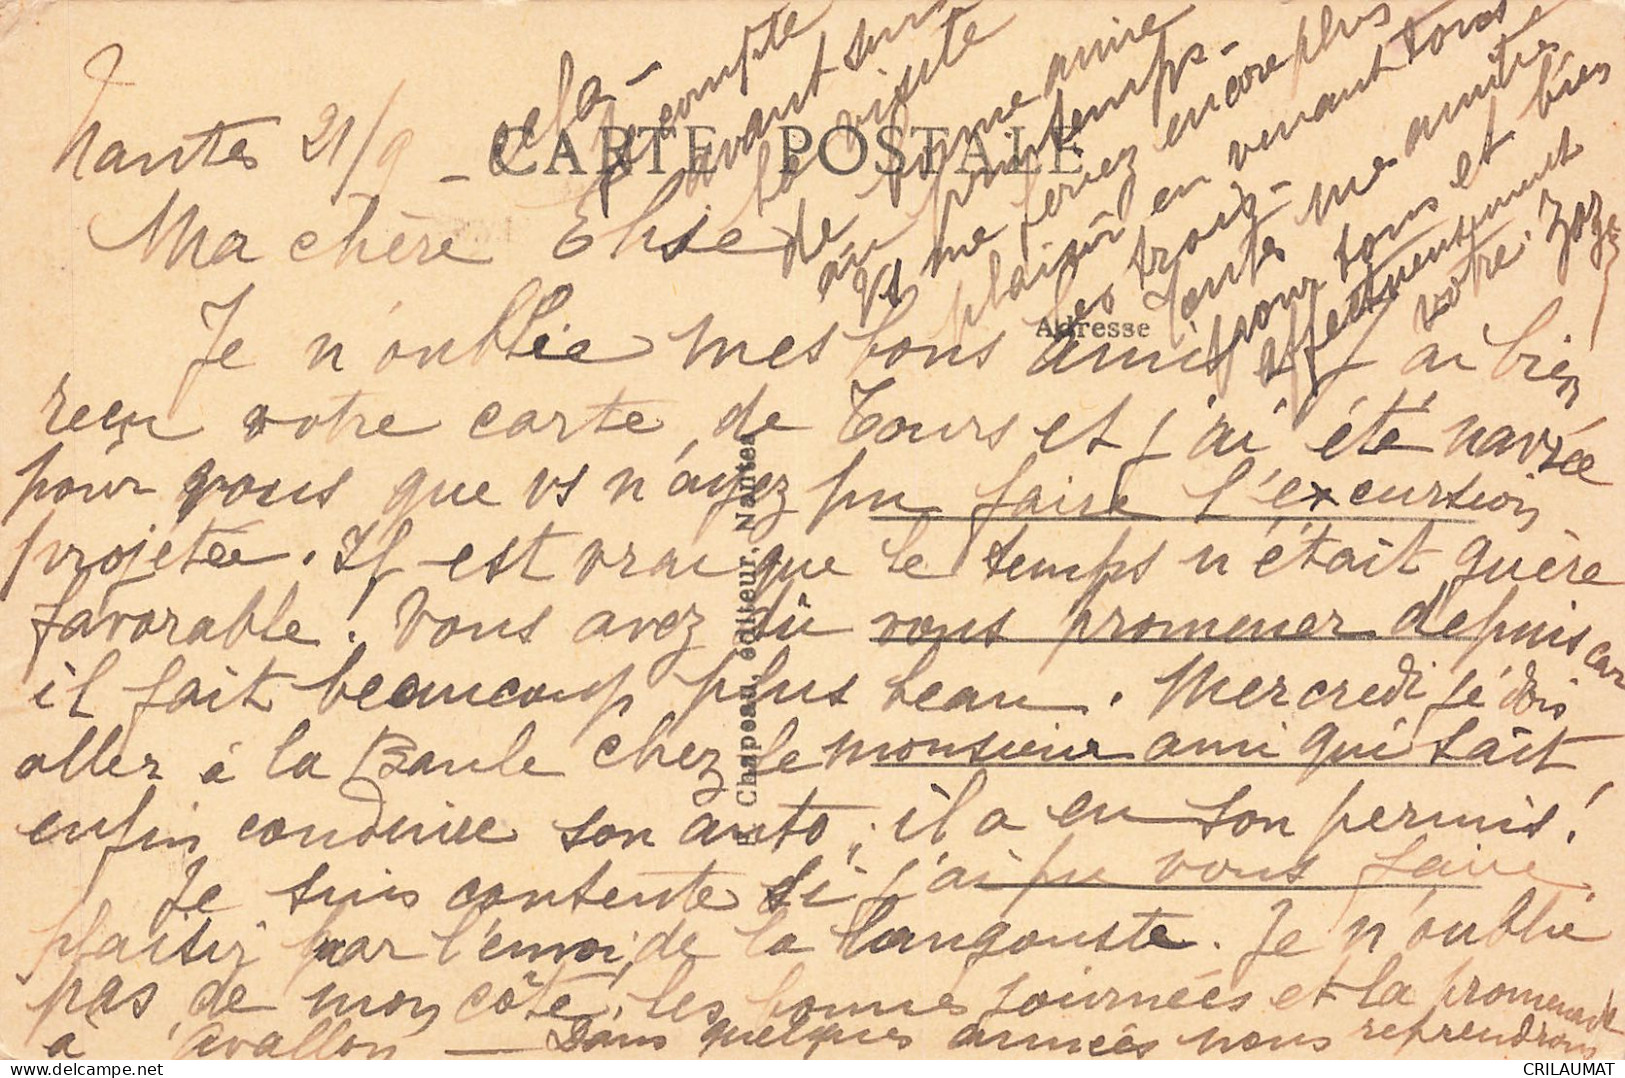 Nantes 21/9 -
CARTE POSTALE
Ma chère Elise
Adresse
Je n'oublie mes bons amis J'ai bien
reçu votre carte de Tours et j'ai été navrée
pour vous que vs n'ayez pu faire l'excursion
projetée. Il est vrai que le temps n'était guère
favorable! Vous avez dû vous promener depuis car
il fait beaucoup plus beau. Mercredi je dois
aller à la Baule chez le monsieur ami qui sait
enfin conduire son auto, il a eu son permis!
Je suis contente si j'ai pu vous faire
plaisir par l'envoi de la langouste. Je n'oublie
pas, de mon côté, les bonnes journées et la promenade
à Avallon — Dans quelques années nous reprendrons
cela -
Je compte
avant sur
la visite
de bonne amie
au printemps -
Vs me feriez encore plus
plaisir en venant tous
les trois -
Toutes mes amitiés
pour tous et bien
affectueusement
votre Zozo
Chapeau, éditeur, Nantes
CRILAUMAT